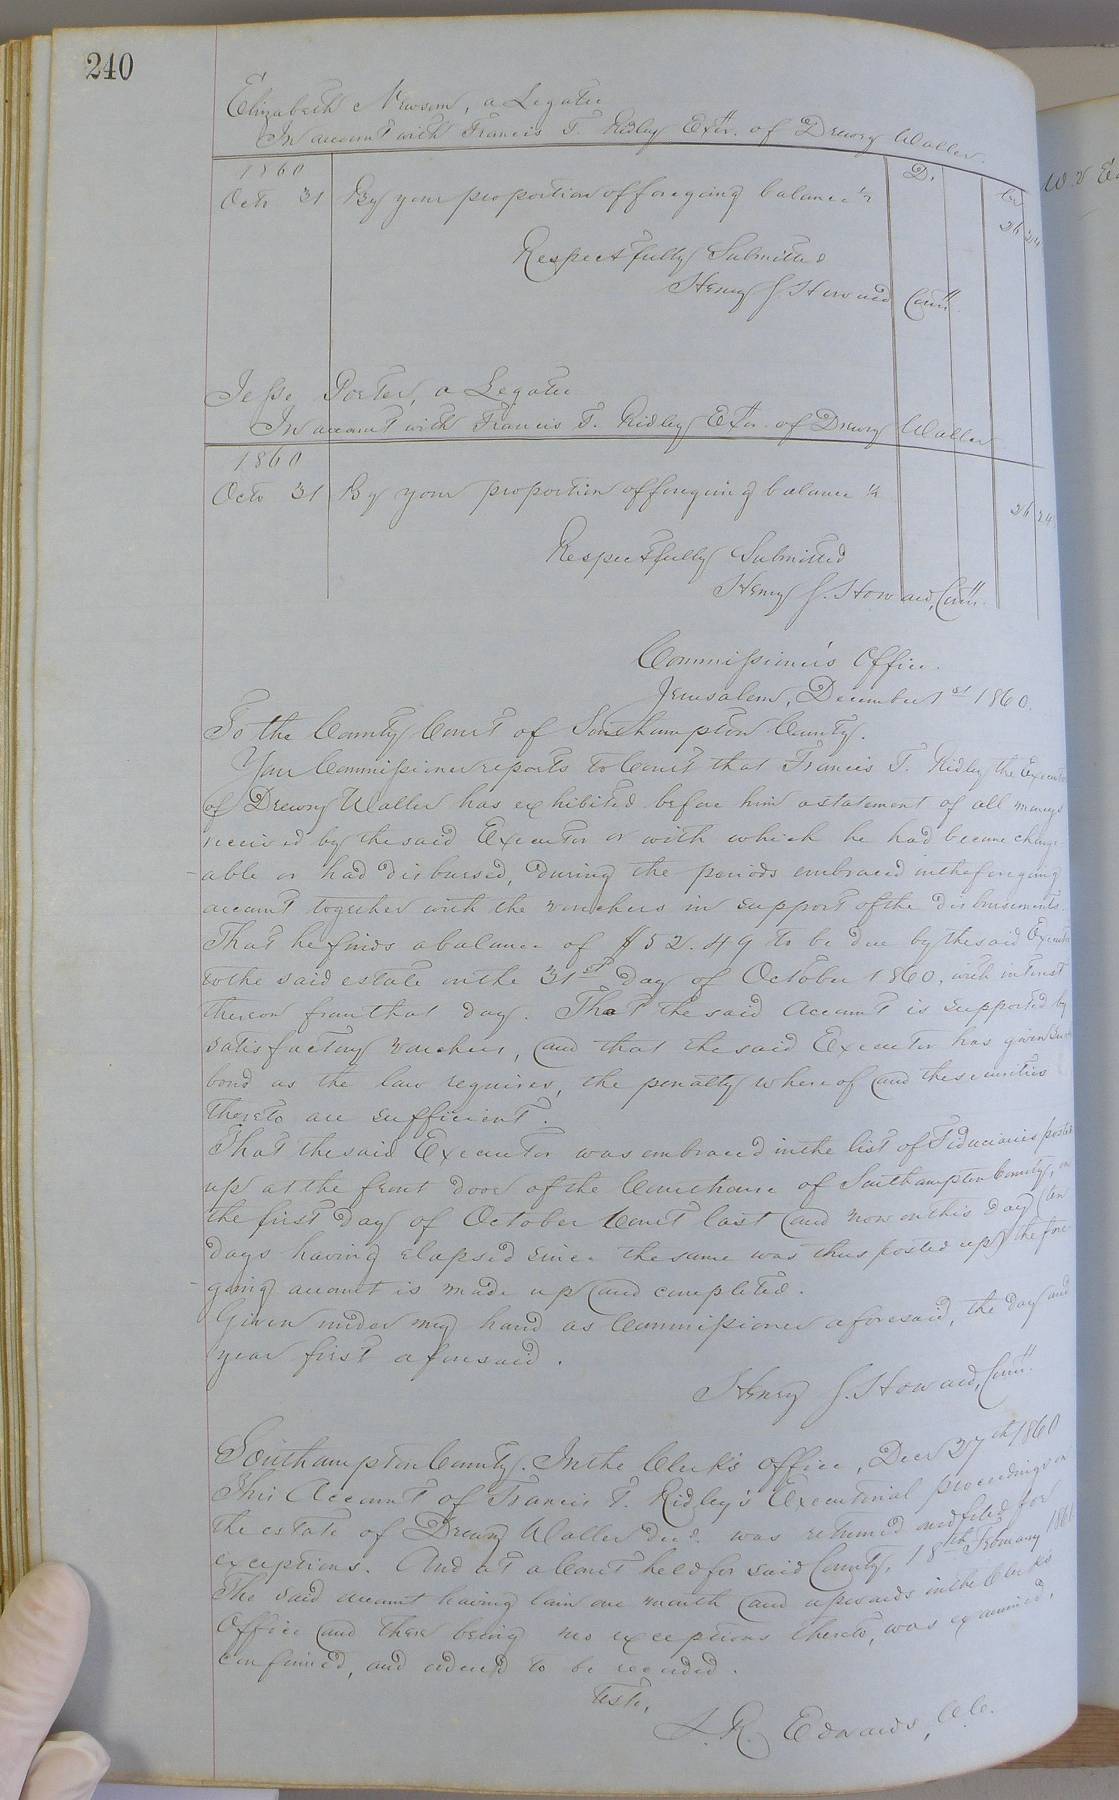 240
Elizabeth Newsom, a Legatee
In account with Francis T. Ridley Exor. of Drewry Waller.
1860
D.
Cr
Octo 31 By your proportion of foregoing balance ½
26 24
Respectfully Submitted
Henry J. Howard Comr.
Jesse Porter, a Legatee
In account with Francis T. Ridley Exor. of Drewry Waller
1860
Octo 31 By your proportion of foregoing balance ½
26 24
Respectfully Submitted
Henry J. Howard, Comr.
Commissioner's Office.
Jerusalem, December 1st 1860.
To the County Court of Southampton County.
Your Commissioner reports to Court that Francis T. Ridley the Executor
of Drewry Waller has exhibited before him a statement of all moneys
received by the said Executor or with which he had become charge-
able or had disbursed, during the periods embraced in the foregoing
account together with the vouchers in support of the disbursements.
That he finds a balance of $52.49 to be due by the said Executor
to the said estate on the 31st day of October 1860, with interest
thereon from that day. That the said Account is supported by
satisfactory vouchers, and that the said Executor has given such
bond as the law requires, the penalty whereof and the securities
thereto are sufficient.
That the said Executor was embraced in the list of Fiduciaries posted
up at the front door of the Courthouse of Southampton County, on
the first day of October Court last and now on this day (ten
days having elapsed since the same was thus posted up) the fore-
going account is made up and completed.
Given under my hand as Commissioner aforesaid, the day and
year first aforesaid.
Henry J. Howard, Comr.
Southampton County. In the Clerk's office, Decr 27th 1860
This Account of Francis T. Ridley's Executorial proceedings on
the estate of Drewry Waller decd. was returned and filed for
exceptions. And at a Court held for said County, 18th February 1861
The said account having lain one month and upwards in the Clerk's
Office and there being no exceptions thereto, was examined,
confirmed, and ordered to be recorded.
Teste,
L. R. Edwards, C.C.